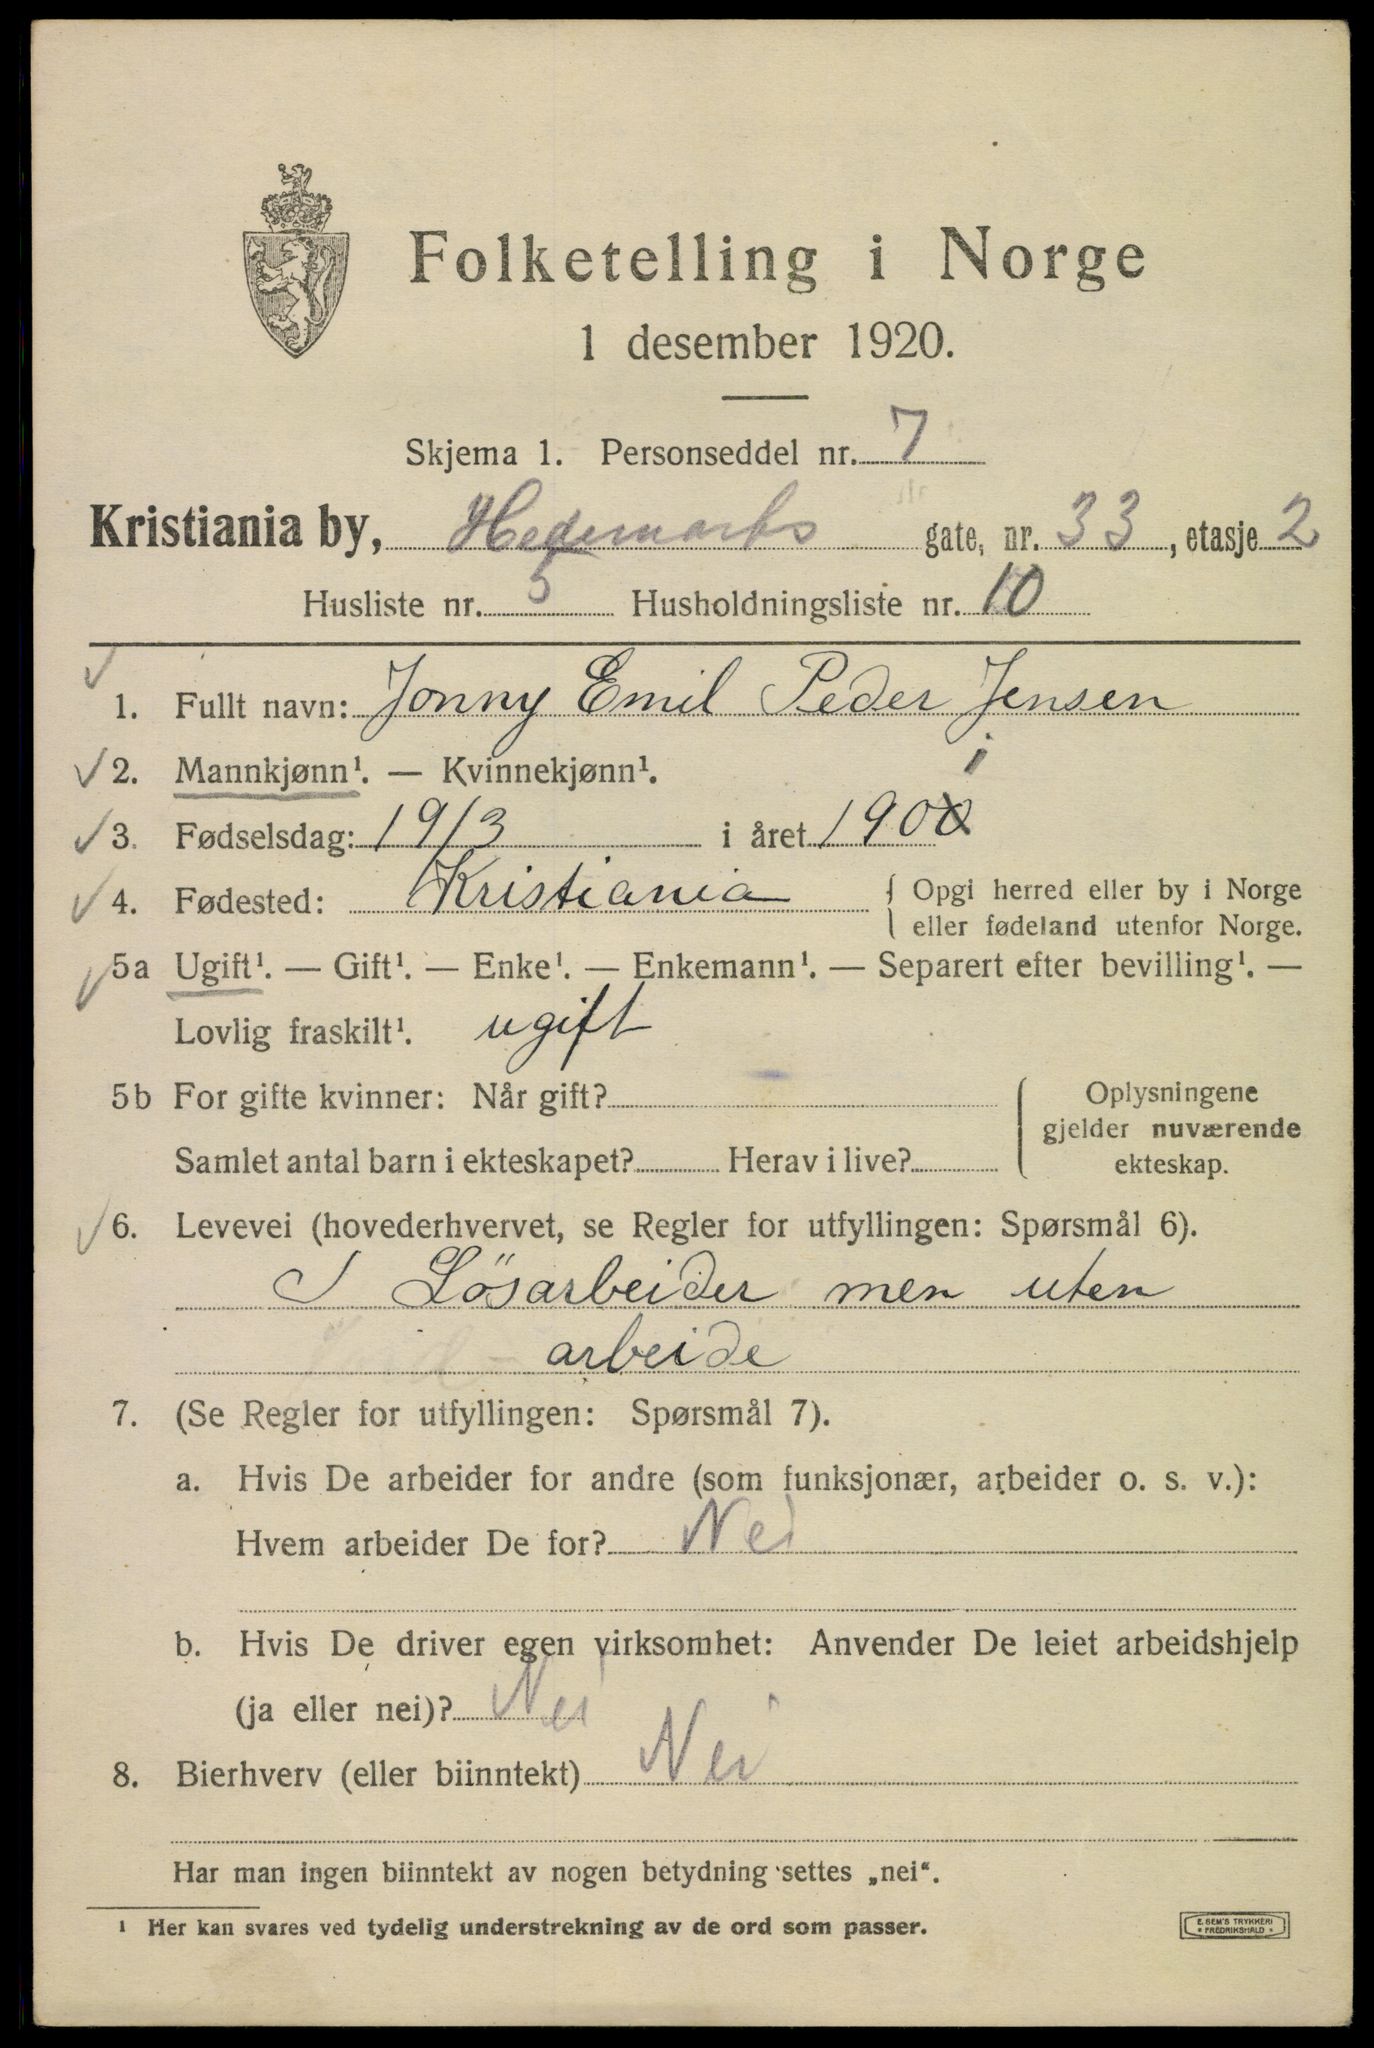 Folketelling i Norge
1 desember 1920.
Skjema 1. Personseddel nr. 7
Kristiania by, Hedemarks gate, nr. 33, etasje 2
Husliste nr. 5 Husholdningsliste nr. 10
1. Fullt navn: Jonny Emil Peder Jensen
2. Mannkjønn¹. — Kvinnekjønn¹.
3. Fødselsdag: 19/3 i året 1900 1
4. Fødested: Kristiania { Opgi herred eller by i Norge
eller fødeland utenfor Norge.
5a Ugift¹. — Gift¹. — Enke¹. — Enkemann¹. — Separert efter bevilling¹. —
Lovlig fraskilt¹. ugift
5b For gifte kvinner: Når gift? { Oplysningene
gjelder nuværende
Samlet antal barn i ekteskapet? Herav i live? ekteskap.
6. Levevei (hovederhvervet, se Regler for utfyllingen: Spørsmål 6).
Lösarbeider men uten
arbeide
7. (Se Regler for utfyllingen: Spørsmål 7).
a. Hvis De arbeider for andre (som funksjonær, arbeider o. s. v.):
Hvem arbeider De for? Nei
b. Hvis De driver egen virksomhet: Anvender De leiet arbeidshjelp
(ja eller nei)? Nei
8. Bierhverv (eller biinntekt) Nei
Har man ingen biinntekt av nogen betydning settes „nei“.
¹ Her kan svares ved tydelig understrekning av de ord som passer.
E. SEM'S TRYKKERI
* FREDRIKSHALD *